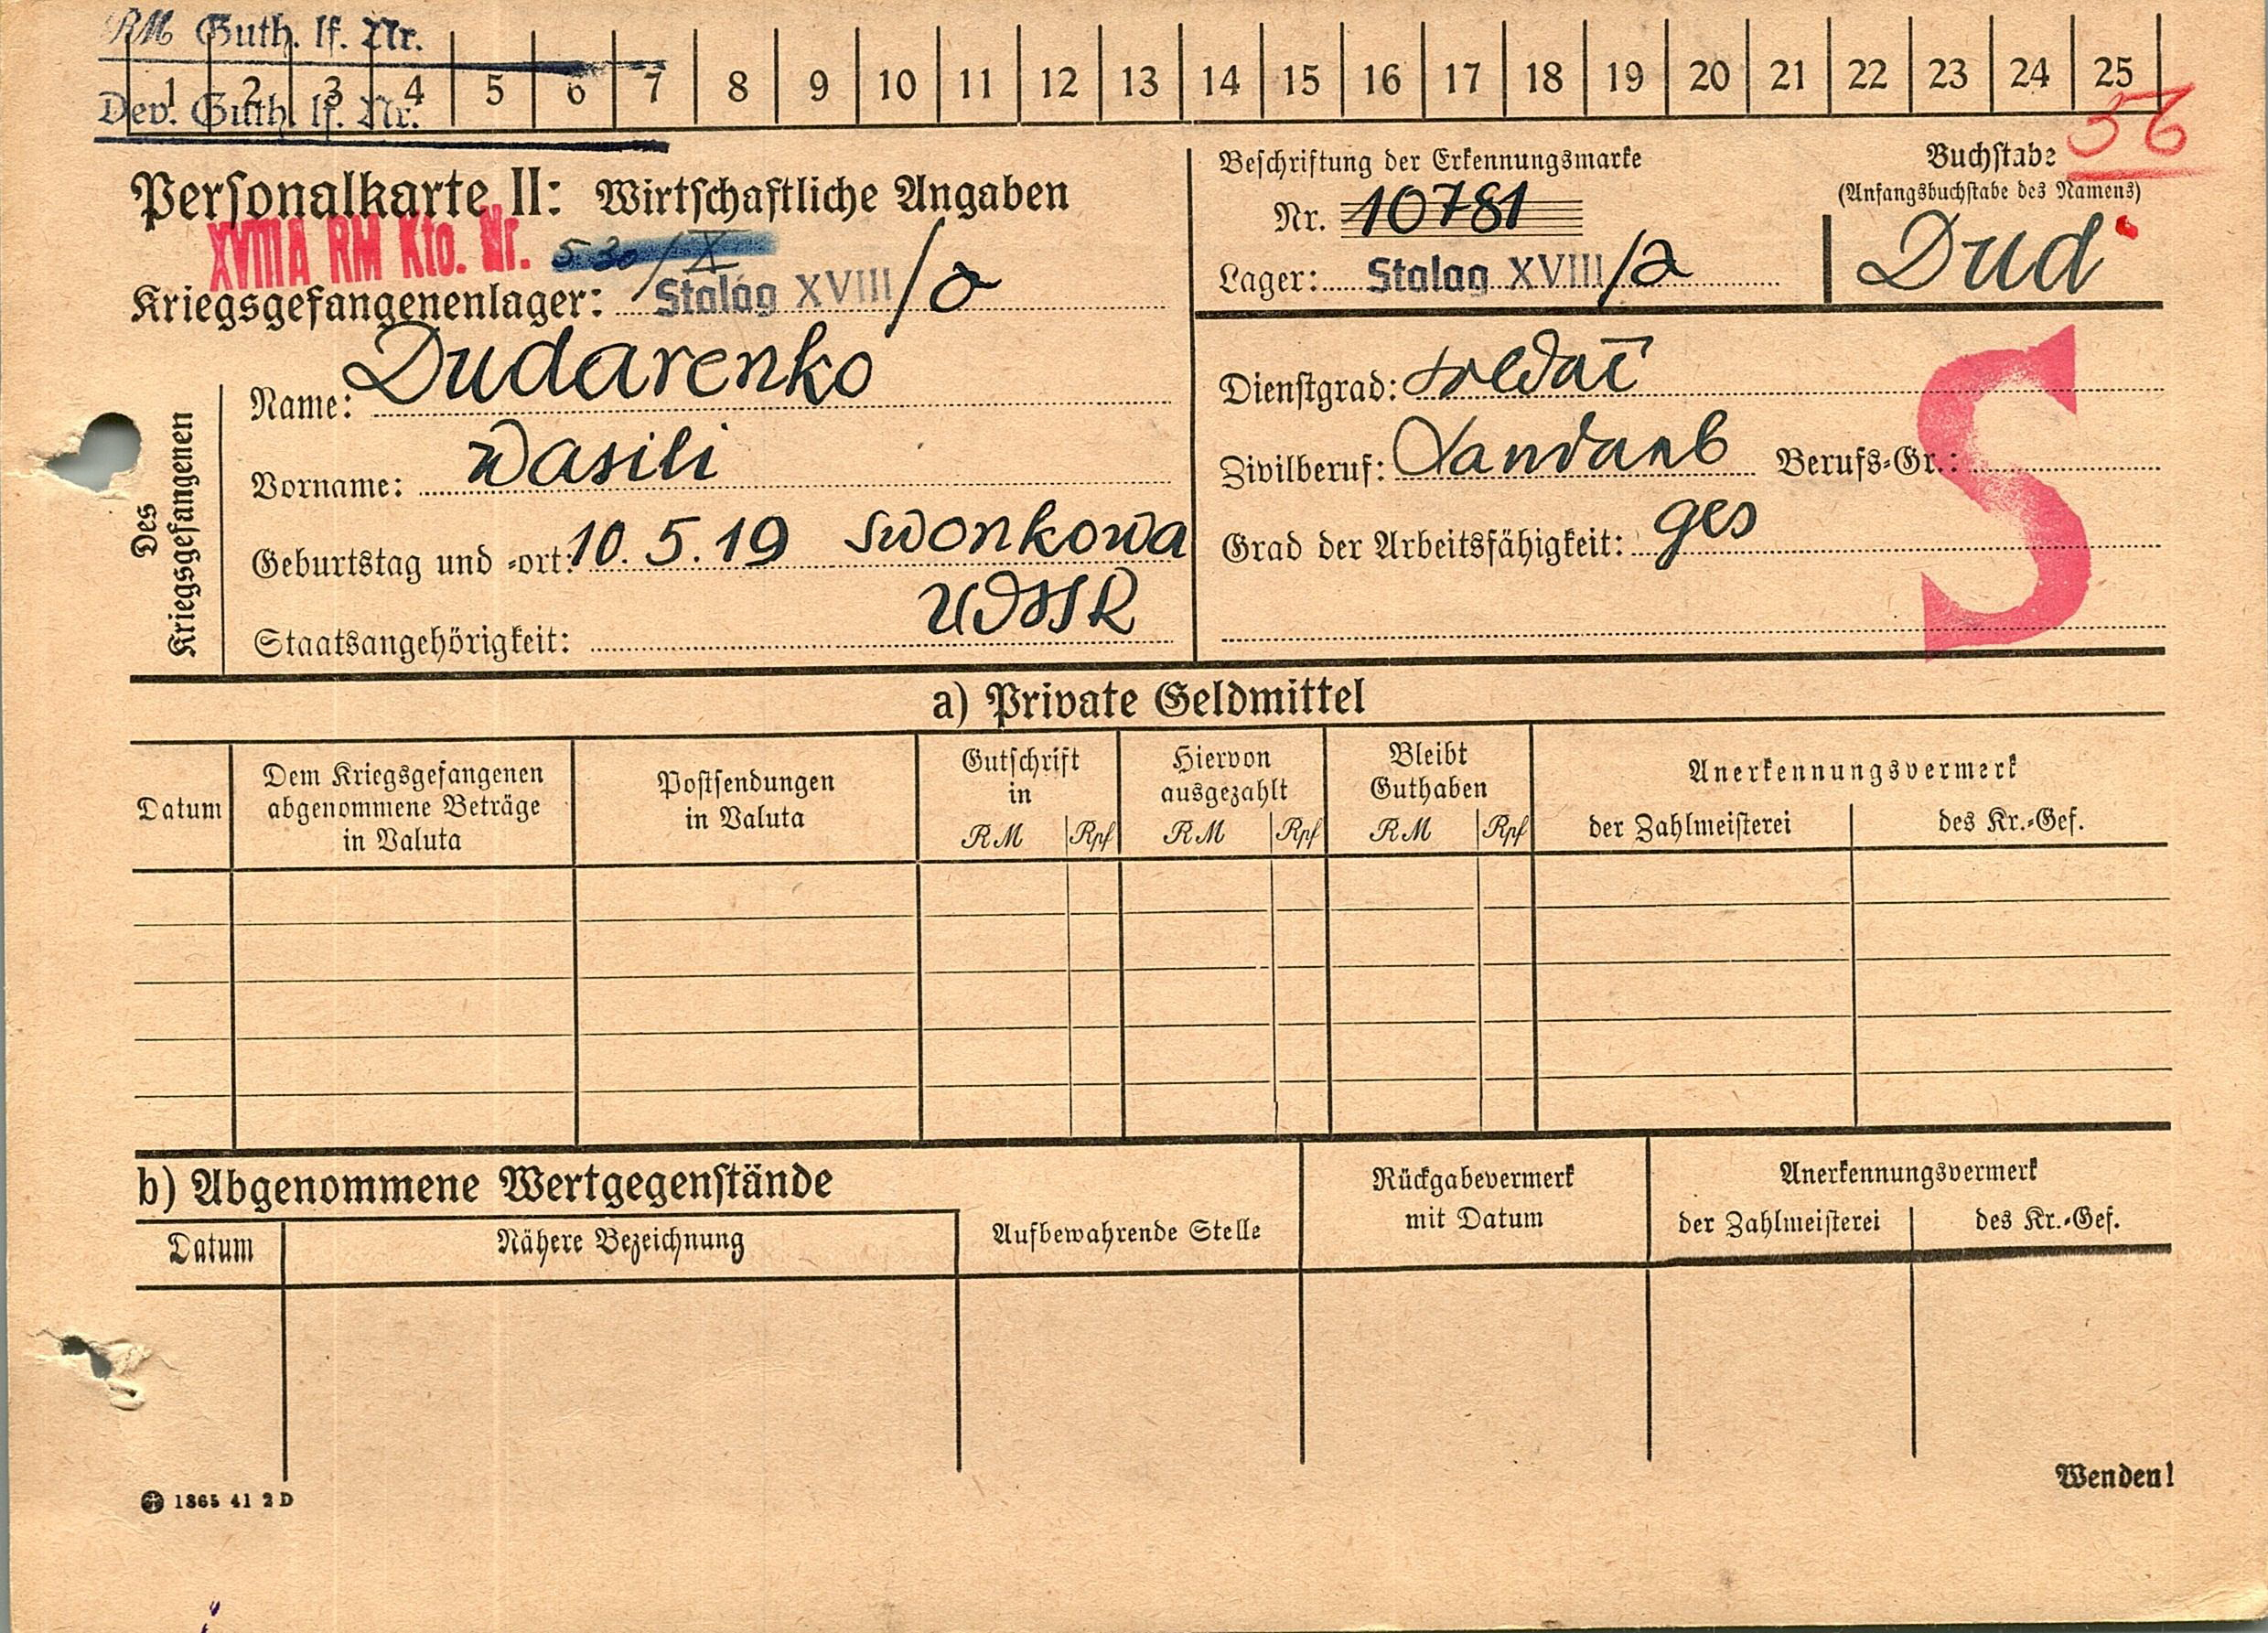 RM Guth. lf. Nr.
1 2 3 4 5 6 7 8 9 10 11 12 13 14 15 16 17 18 19 20 21 22 23 24 25
Dev. Guth. lf. Nr.
56
Personalkarte II: Wirtschaftliche Angaben
XVIII A RM Kto. Nr. 530/X
Kriegsgefangenenlager: Stalag XVIII/a
Beschriftung der Erkennungsmarke
Nr. 10781
Lager: Stalag XVIII/a
Buchstabe
(Anfangsbuchstabe des Namens)
Dud
Des Kriegsgefangenen
Name: Dudarenko
Vorname: Wasili
Geburtstag und -ort: 10.5.19 Swonkowa
Staatsangehörigkeit: UDSSR
Dienstgrad: soldat
Zivilberuf: Landarb Berufs-Gr.:
Grad der Arbeitsfähigkeit: ges
S
a) Private Geldmittel
Datum
Dem Kriegsgefangenen
abgenommene Beträge
in Valuta
Postsendungen
in Valuta
Gutschrift
in
RM Rpf
Hiervon
ausgezahlt
RM Rpf
Bleibt
Guthaben
RM Rpf
Anerkennungsvermerk
der Zahlmeisterei
des Kr.-Gef.
b) Abgenommene Wertgegenstände
Datum
Nähere Bezeichnung
Aufbewahrende Stelle
Rückgabevermerk
mit Datum
Anerkennungsvermerk
der Zahlmeisterei
des Kr.-Gef.
1865 41 2 D
Wenden!